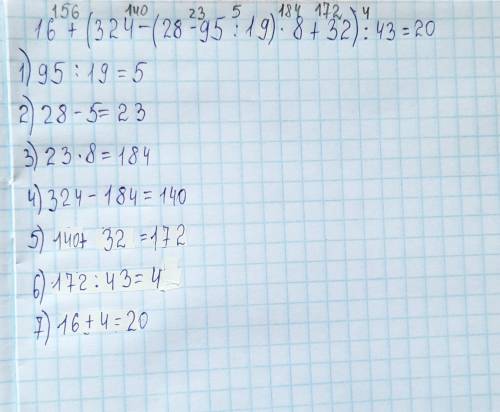 156 140 23 5 184 172 4
16 + (324 - (28 - 95 : 19) · 8 + 32) : 43 = 20
1) 95 : 19 = 5
2) 28 - 5 = 23
3) 23 · 8 = 184
4) 324 - 184 = 140
5) 140 + 32 = 172
6) 172 : 43 = 4
7) 16 + 4 = 20